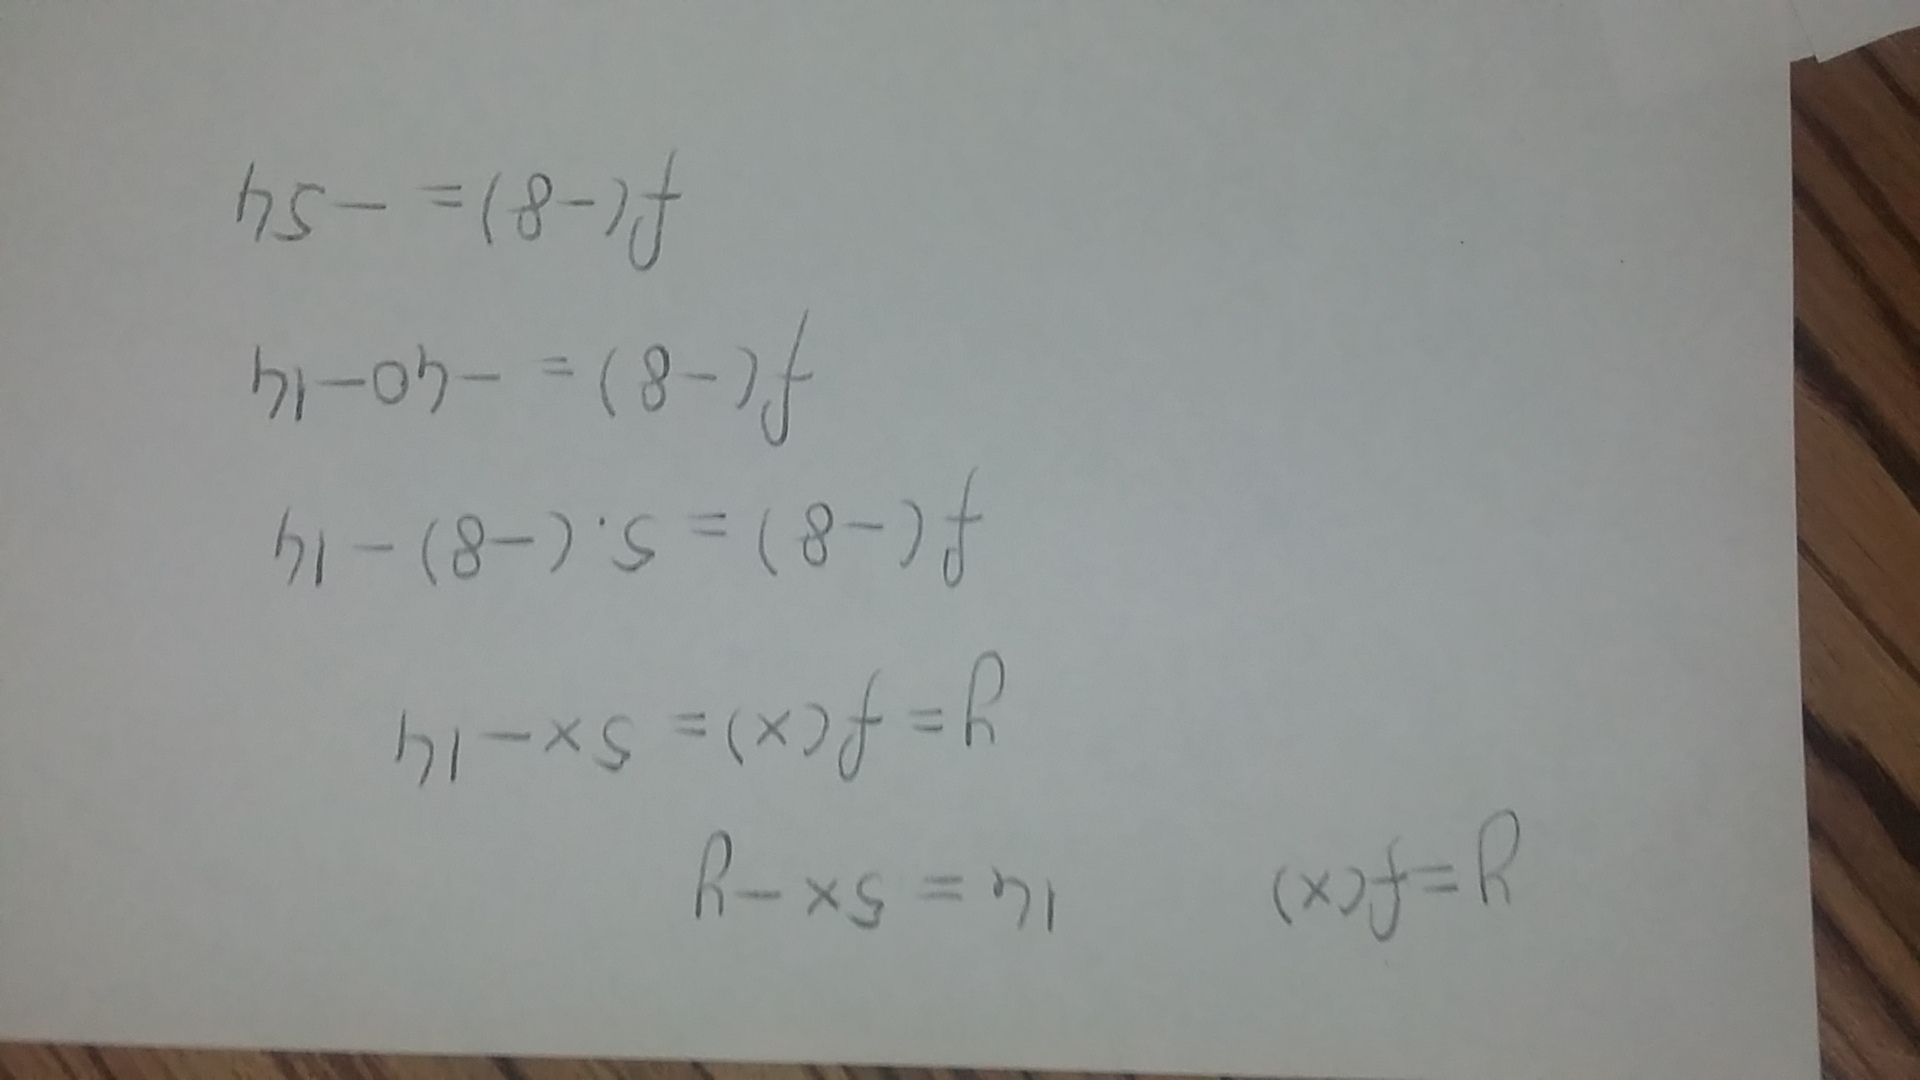 y=f(x) 14=5x-y
y=f(x)=5x-14
f(-8)=5.(-8)-14
f(-8)=-40-14
f(-8)=-54